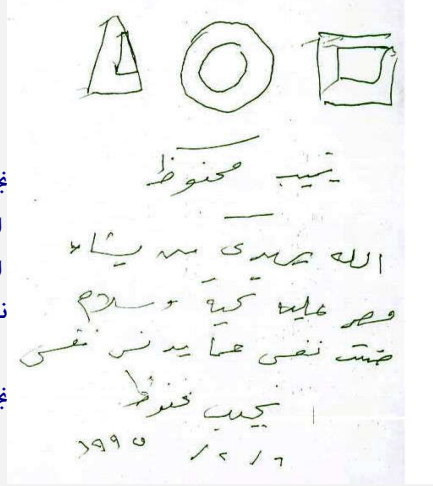 نجيب محفوظ
الله يهدى من يشاء
مصر عليها تحية وسلام
صنت نفسى عما يدنس نفسى
نجيب محفوظ
٦ / ٢ / ١٩٩٥